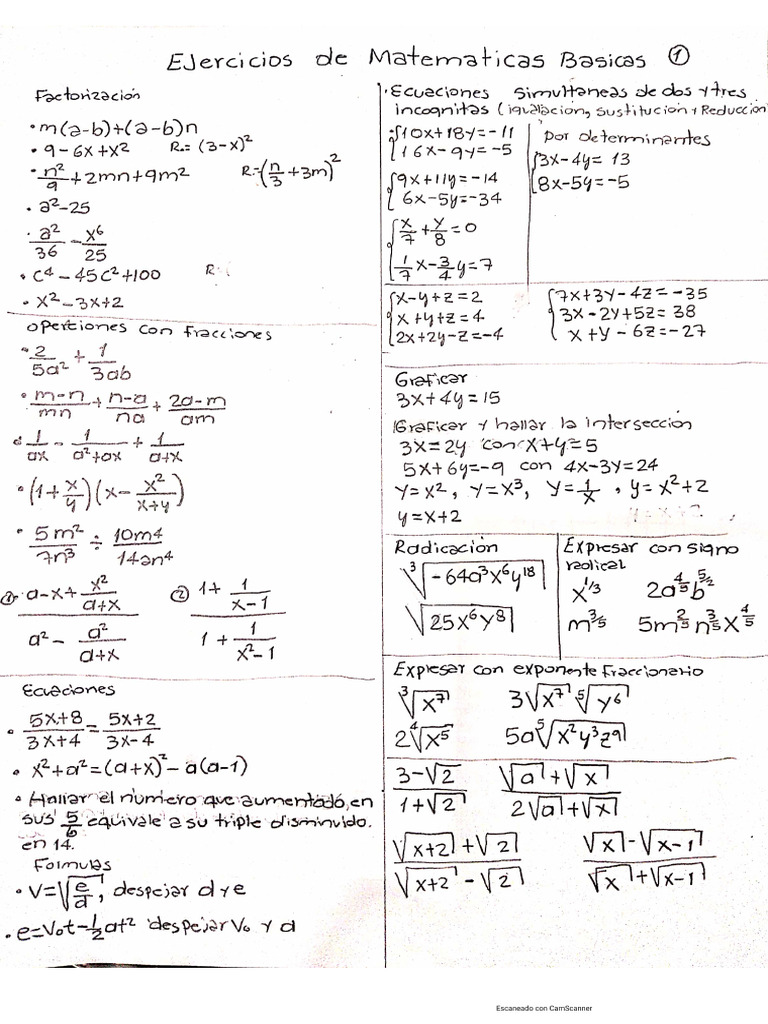 Ejercicios de Matematicas Basicas ①
Factorización
• m(a-b)+(a-b)n
• 9-6x+x² R.= (3-x)²
• n²/9 + 2mn+9m² R=(n/3 +3m)²
• a²-25
• a²/36 - x⁶/25
• c⁴-45c²+100 R:(
• x²-3x+2
Opertiones con fracciones
• 2/5a² + 1/3ab
• m-n/mn + n-a/na + 2a-m/am
• 1/ax - 1/a²+ax + 1/a+x
• (1+x/y)(x-x²/x+y)
• 5m²/7n³ ÷ 10m⁴/14an⁴
① a-x+x²/a+x
a²-a²/a+x
② 1+1/x-1
1+1/x²-1
Ecuaciones
• 5x+8/3x+4 = 5x+2/3x-4
• x²+a²=(a+x)²-a(a-1)
• Hallar el numero que aumentado, en
sus 5/6 equivale a su triple disminuido.
en 14.
Formulas
• V=√e/d, despejar d y e
• e=Vot-1/2at² despejar Vo y a
• Ecuaciones simultaneas de dos y tres
incognitas (igualacion, sustitucion y Reducción)
{10x+18y=-11
16x-9y=-5
{9x+11y=-14
6x-5y=-34
{x/7+y/8=0
1/7x-3/4y=7
por determinantes
{3x-4y=13
8x-5y=-5
{x-y+z=2
x+y+z=4
2x+2y-z=-4
{7x+3y-4z=-35
3x-2y+5z=38
x+y-6z=-27
Graficar
3x+4y=15
Graficar y hallar la interseccion
3x=2y con x+y=5
5x+6y=-9 con 4x-3y=24
y=x², y=x³, y=1/x, y=x²+2
y=x+2
Radicación
³√-64a³x⁶y¹⁸
√25x⁶y⁸
Expresar con signo
radical
x^1/3 2a^4/5 b^5/2
m^3/5 5m^2/5 n^3/5 x^4/5
Expresar con exponente fraccionario
³√x⁷ 3√x⁷ ⁵√y⁶
2⁴√x⁵ 5a⁵√x²y³z⁹
3-√2/1+√2 √a+√x/2√a+√x
√x+2+√2/√x+2-√2 √x-√x-1/√x+√x-1
Escaneado con CamScanner